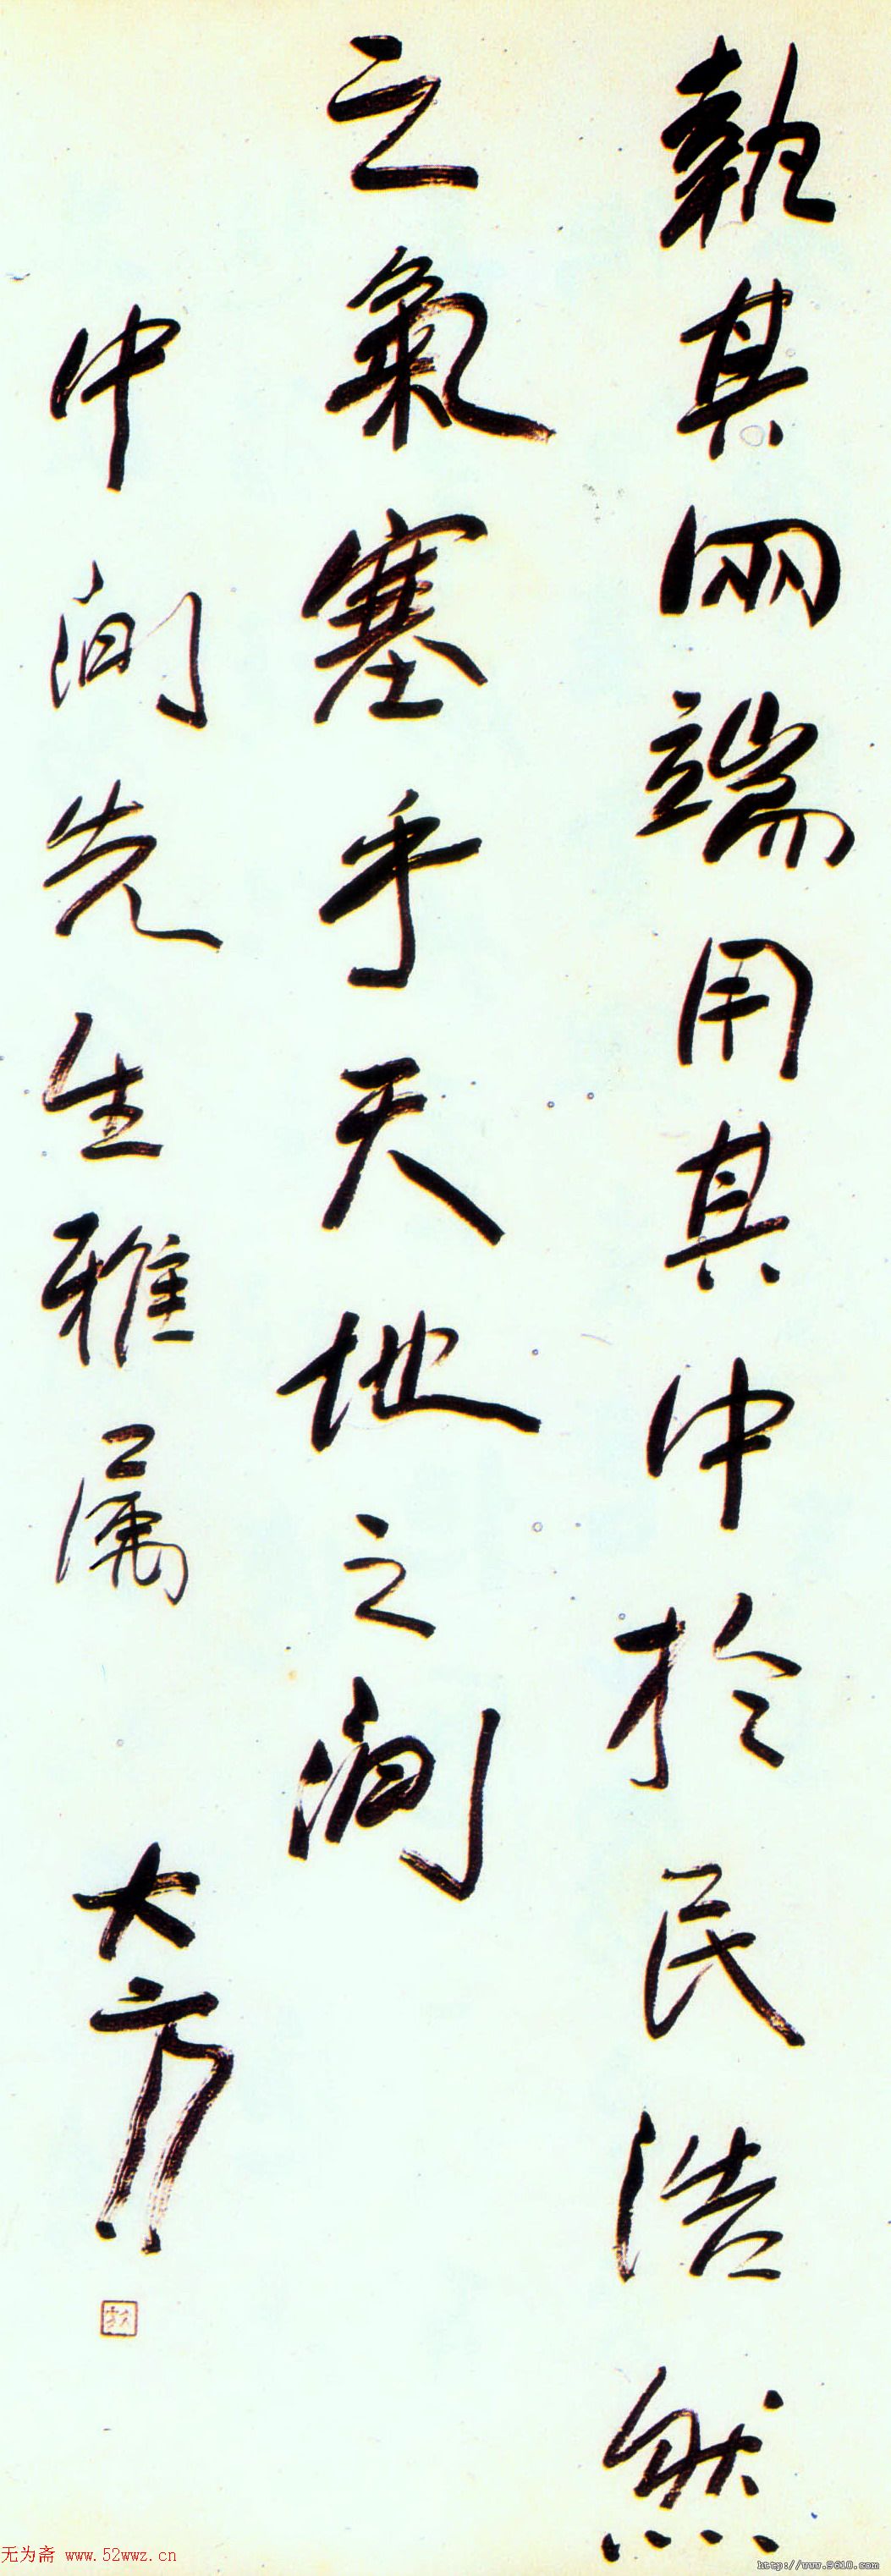 執其兩端用其中於民浩然
之氣塞乎天地之間
中間先生雅屬
大方
无为斋 www.52wwz.cn
http://www.9610.com